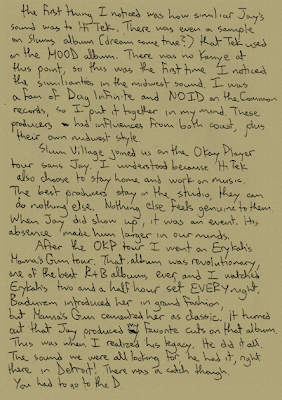 the first thing I noticed was how similiar Jay's
sound was to Hi Tek. There was even a sample
on Slums album (dream come true?) that Tek used
on the MOOD album. There was no Kanye at
this point, so this was the first time I noticed
the similarities in the midwest sound. I was
a fan of Day Infinite and NOID on the Common
records, so I put it together in my mind. These
producers had influences from both coast, plus
their own midwest style.
Slum Village joined us on the Okay Player
tour sans Jay. I understood because Hi Tek
also choose to stay home and work on music.
The best producers stay in the studio, they can
do nothing else. Nothing else feels genuine to them
When Jay did show up, it was an event. His
absence made him larger in our minds.
After the OKP tour I went on Erykahs
Mama's Gun tour. That album was revolutionary,
one of the best R+B albums ever and I watched
Erykahs two and a half hour set EVERY night.
Baduizm introduced her in grand fashion,
but Mama's Gun cemented her as classic. It turned
out that Jay produced my favorite cuts on that album.
This was when I realized his legacy. He did it all.
The sound we were all looking for he had it, right
there in Detroit! There was a catch though.
You had to go to the D